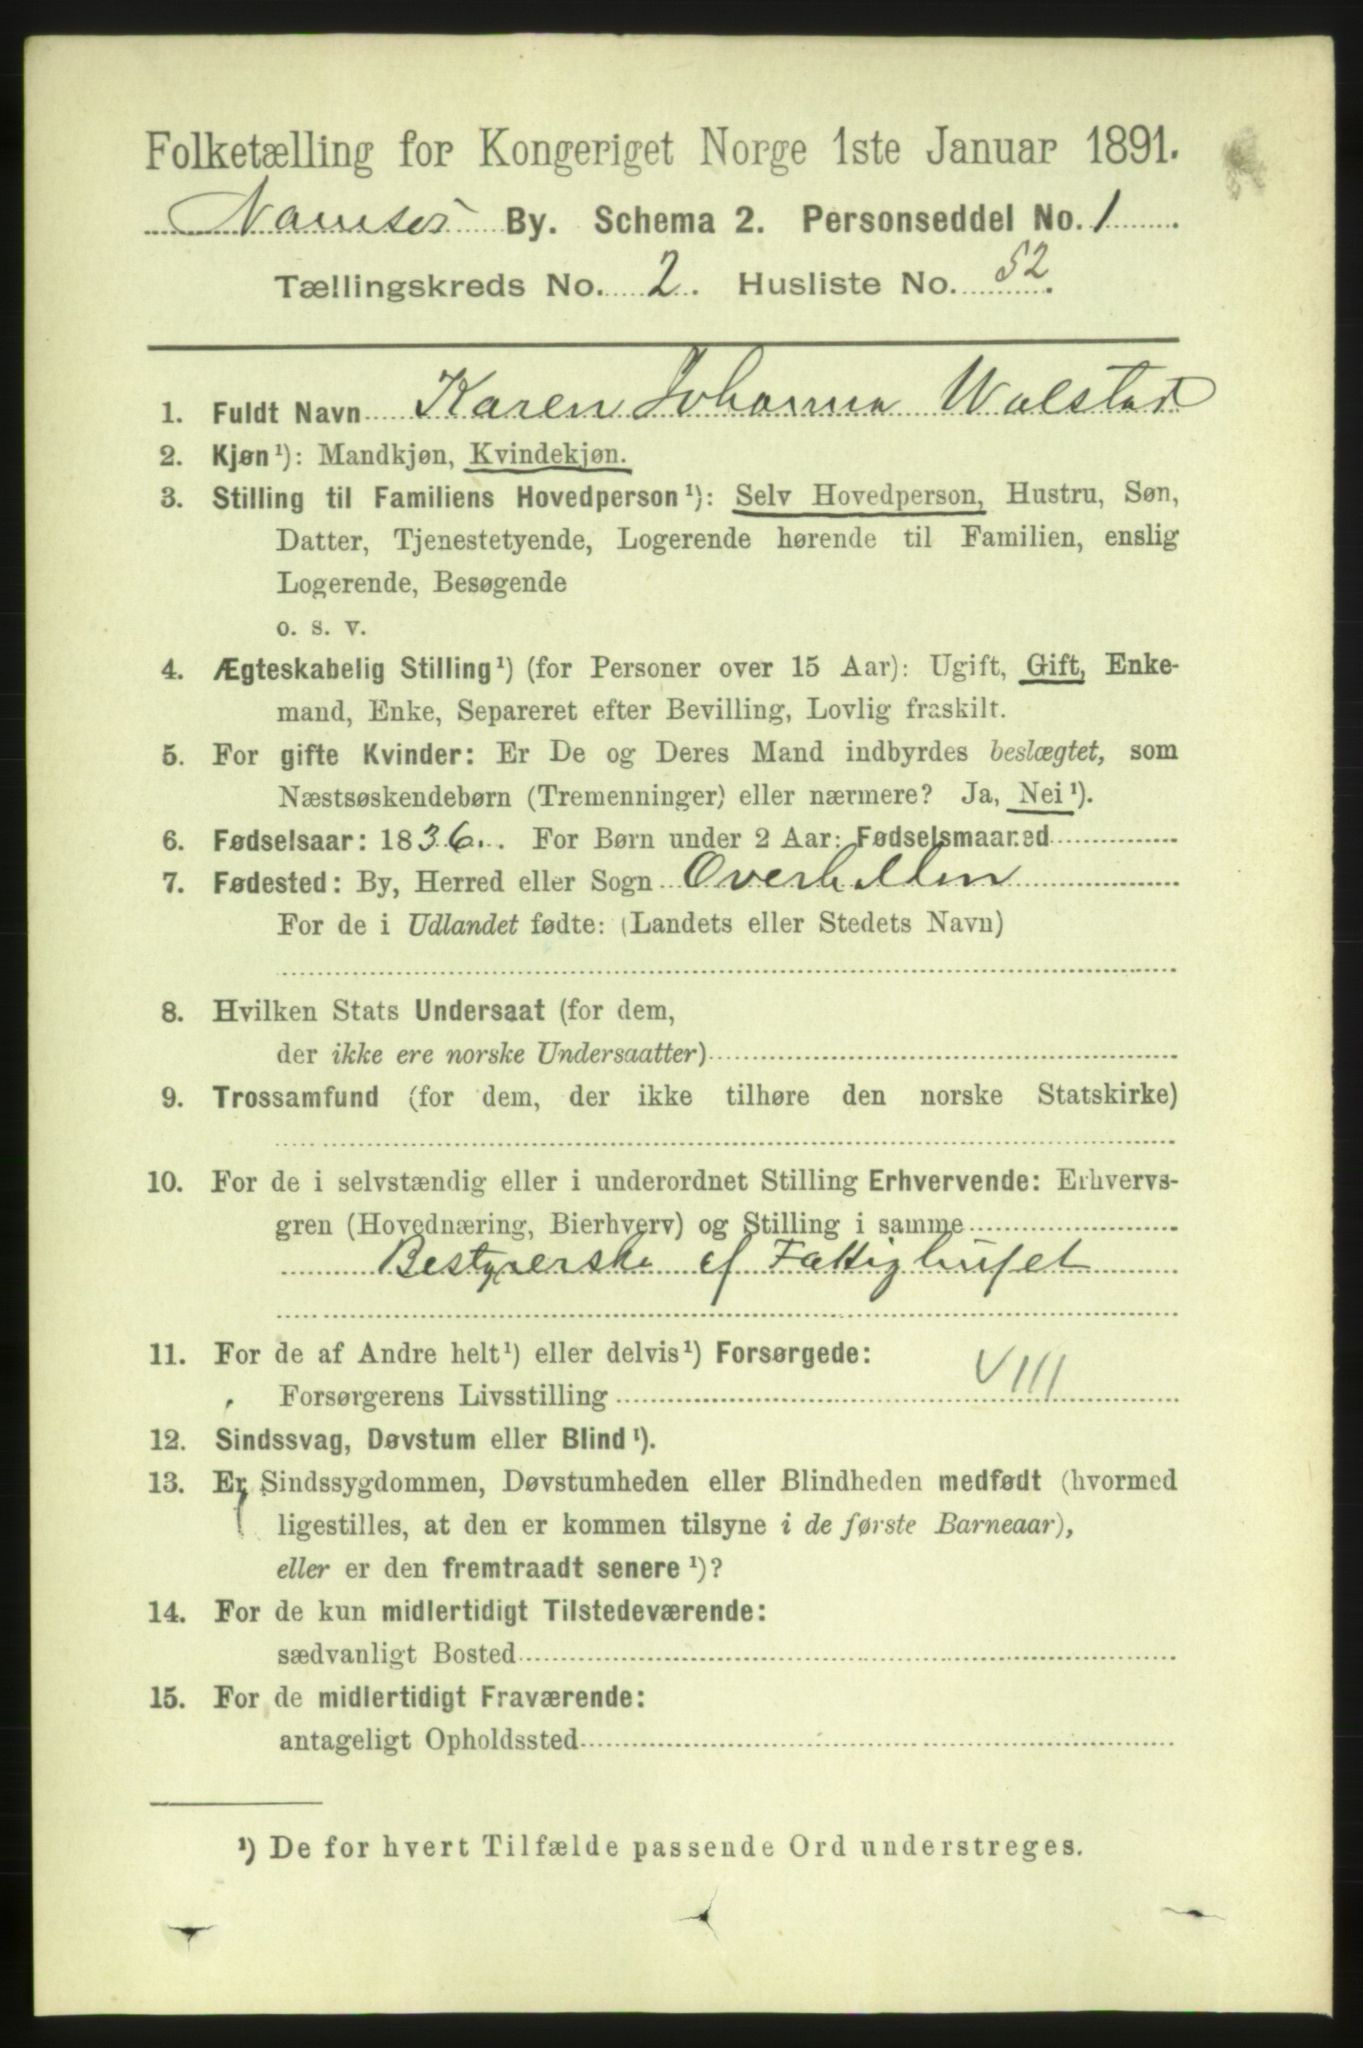 Folketælling for Kongeriget Norge 1ste Januar 1891.
Namsos By. Schema 2. Personseddel No. 1
Tællingskreds No. 2. Husliste No. 52.
1. Fuldt Navn Karen Johanna Walstad
2. Kjøn¹): Mandkjøn, Kvindekjøn.
3. Stilling til Familiens Hovedperson¹): Selv Hovedperson, Hustru, Søn,
Datter, Tjenestetyende, Logerende hørende til Familien, enslig
Logerende, Besøgende
o. s. v.
4. Ægteskabelig Stilling¹) (for Personer over 15 Aar): Ugift, Gift, Enke-
mand, Enke, Separeret efter Bevilling, Lovlig fraskilt.
5. For gifte Kvinder: Er De og Deres Mand indbyrdes beslægtet, som
Næstsøskendebørn (Tremenninger) eller nærmere? Ja, Nei¹).
6. Fødselsaar: 1836. For Børn under 2 Aar: Fødselsmaaned
7. Fødested: By, Herred eller Sogn Overhallen
For de i Udlandet fødte: (Landets eller Stedets Navn)
8. Hvilken Stats Undersaat (for dem,
der ikke ere norske Undersaatter)
9. Trossamfund (for dem, der ikke tilhøre den norske Statskirke)
10. For de i selvstændig eller i underordnet Stilling Erhvervende: Erhvervs-
gren (Hovednæring, Bierhverv) og Stilling i samme
Bestyrerske af Fattighuset
11. For de af Andre helt¹) eller delvis¹) Forsørgede:
Forsørgerens Livsstilling VIII
12. Sindssvag, Døvstum eller Blind¹).
13. Er Sindssygdommen, Døvstumheden eller Blindheden medfødt (hvormed
ligestilles, at den er kommen tilsyne i de første Barneaar),
eller er den fremtraadt senere¹)?
14. For de kun midlertidigt Tilstedeværende:
sædvanligt Bosted
15. For de midlertidigt Fraværende:
antageligt Opholdssted
¹) De for hvert Tilfælde passende Ord understreges.